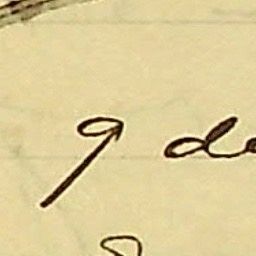 9 de